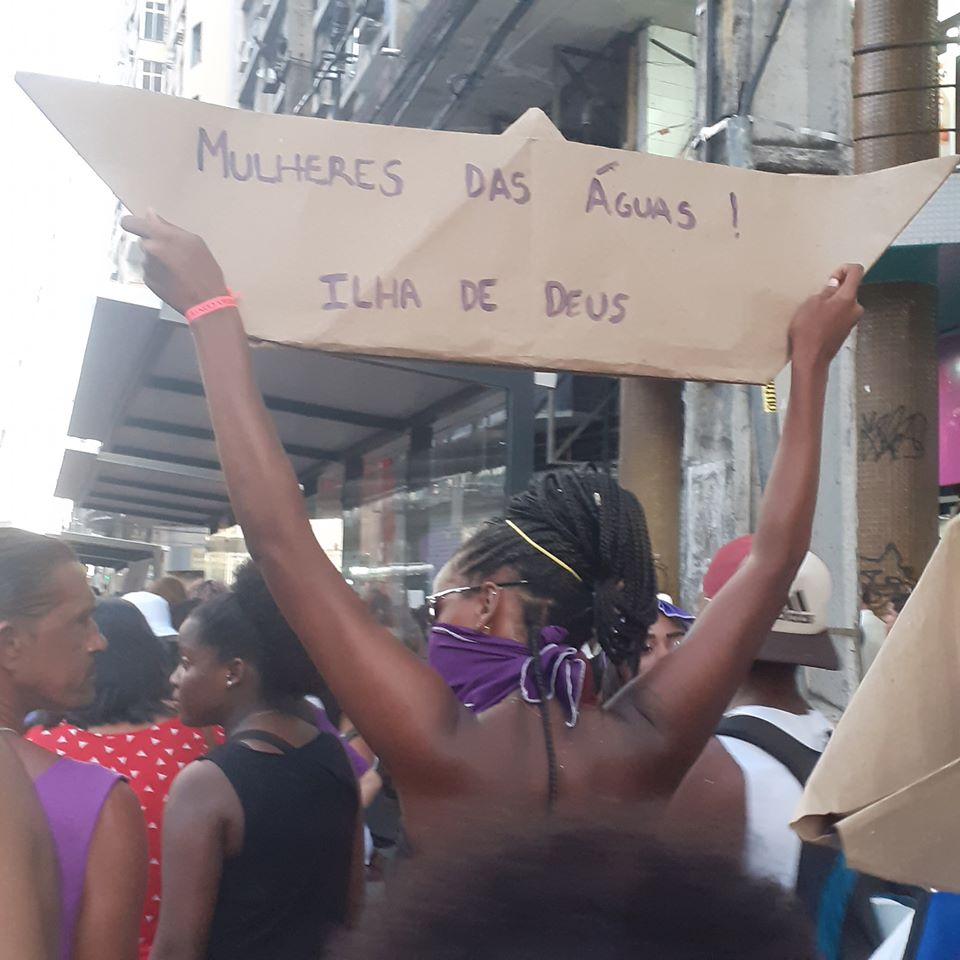 MULHERES DAS ÁGUAS !
ILHA DE DEUS